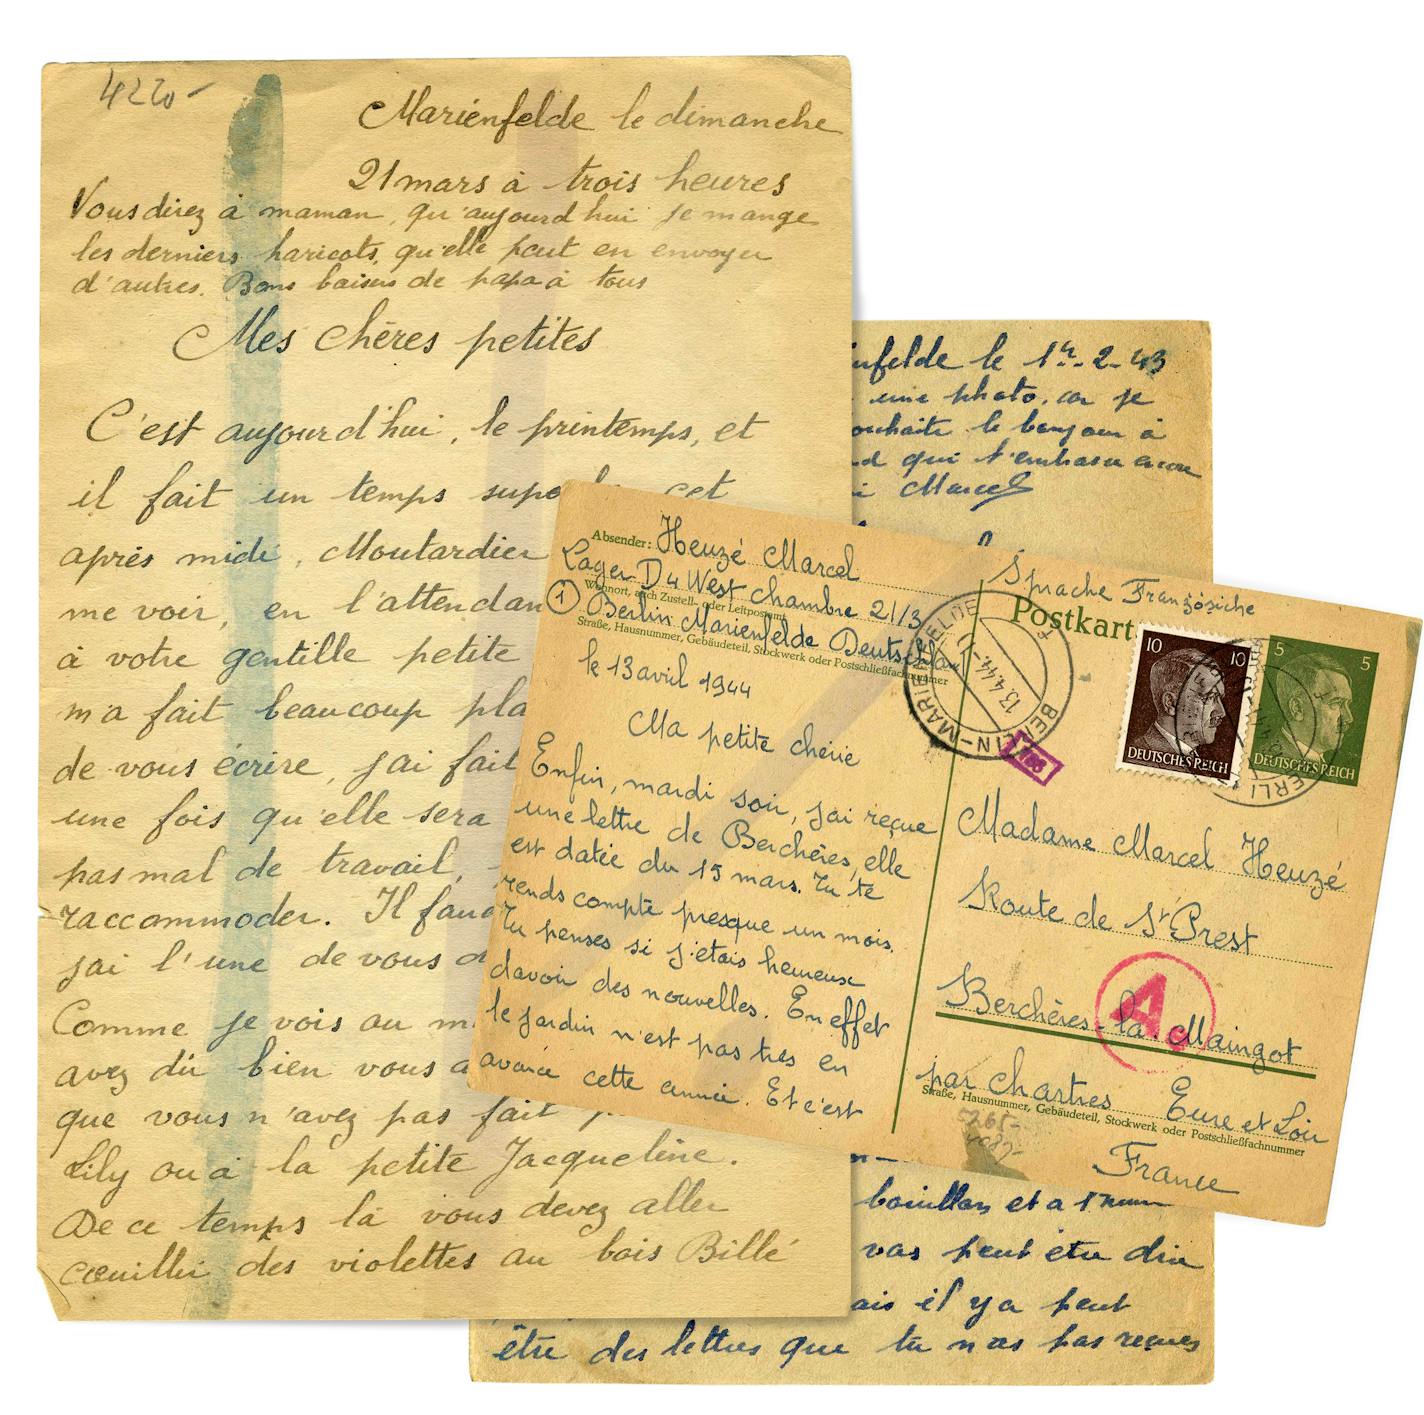 4220-
Marienfelde le dimanche
21 mars à trois heures
Vous direz à maman, qu'aujourd'hui je mange
les derniers haricots, qu'elle peut en envoyer
d'autres. Bons baisers de papa à tous
Mes chères petites
C'est aujourd'hui, le printemps, et
il fait un temps cet
après midi, Moutardier
me voir, en l'attendan
à votre gentille petite
m'a fait beaucoup pla
de vous écrire, j'ai fait
une fois qu'elle sera
pas mal de travail,
raccommoder. Il fau
j'ai l'une de vous
Comme je vois au m
avez dû bien vous a
que vous n'avez pas fait
Lily ou à la petite Jacqueline.
De ce temps là vous devez aller
cœuillir des violettes au bois Billé
nfelde le 1er-2-43
une photo, car je
ouhaite le bonjour à
d qui t'embrasse encore
Marcel
bouillon et a 1 heure
vas peut être dire
ais il y a peut
être des lettres que tu n'as pas reçues
Absender: Heuzé Marcel
Lager D4 West chambre 21/3
Wohnort, auch Zustell- oder Leitpostamt
1 Berlin Marienfelde Deutschland
Straße, Hausnummer, Gebäudeteil, Stockwerk oder Postschließfachnummer
le 13 avril 1944
Ma petite chérie
Enfin, mardi soir, j'ai reçue
une lettre de Berchères, elle
est datée du 15 mars. Tu te
rends compte presque un mois.
Tu penses si j'étais heureux
davoir des nouvelles. En effet
le jardin n'est pas très en
avance cette année. Et c'est
Sprache Französiche
Postkart
BERLIN-MARIENFELDE
13.4.44
10 10
DEUTSCHES REICH
5 5
DEUTSCHES REICH
Madame Marcel Heuzé
Route de St Prest
A
Berchères-la-Maingot
par Chartres Eure et Loir
Straße, Hausnummer, Gebäudeteil, Stockwerk oder Postschließfachnummer
5265-
France